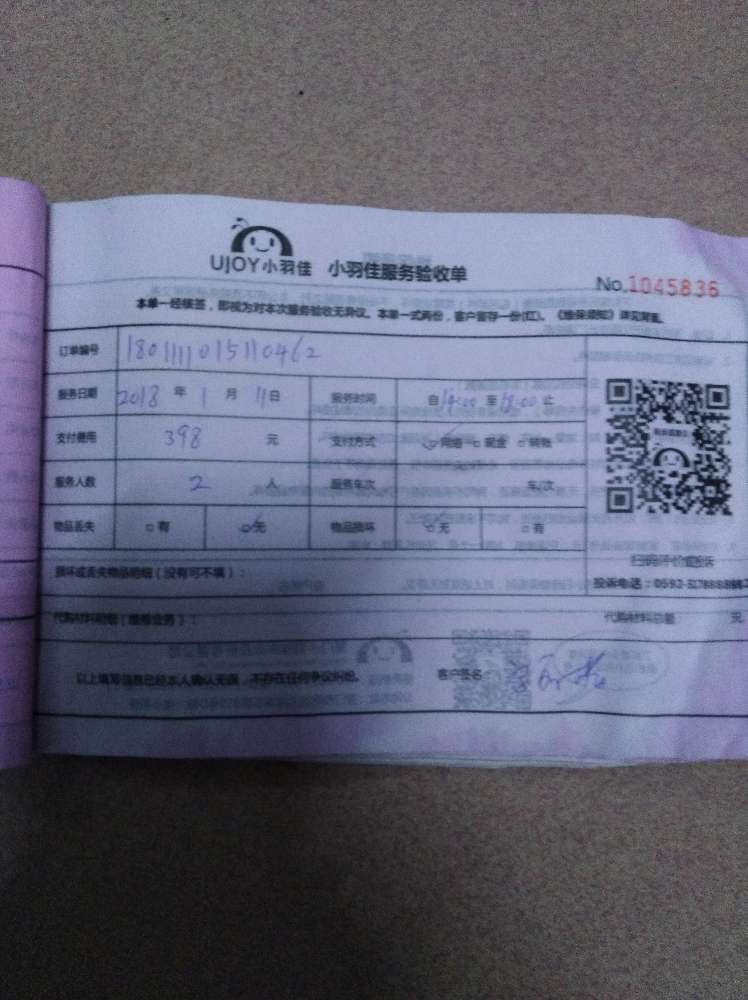 UJOY小羽佳 小羽佳服务验收单
No.1045836
本单一经核签，即视为对本次服务验收无异议。本单一式两份，客户留存一份(红)。《维保须知》详见背面。
订单编号 1801111015110462
服务日期 2018 年 1 月 11 日 服务时间 自 14:00 至 18:00 止
支付费用 398 元 支付方式 网络 现金 转账
服务人数 2 人 服务车次 车/次
物品丢失 有 无 物品损坏 无 有
扫码评价或投诉
损坏或丢失物品明细（没有可不填）：
投诉电话：0592-
代购材料明细（维修业务）： 代购材料总额 元
以上填写信息已经本人确认无误，不存在任何争议纠纷。 客户签名